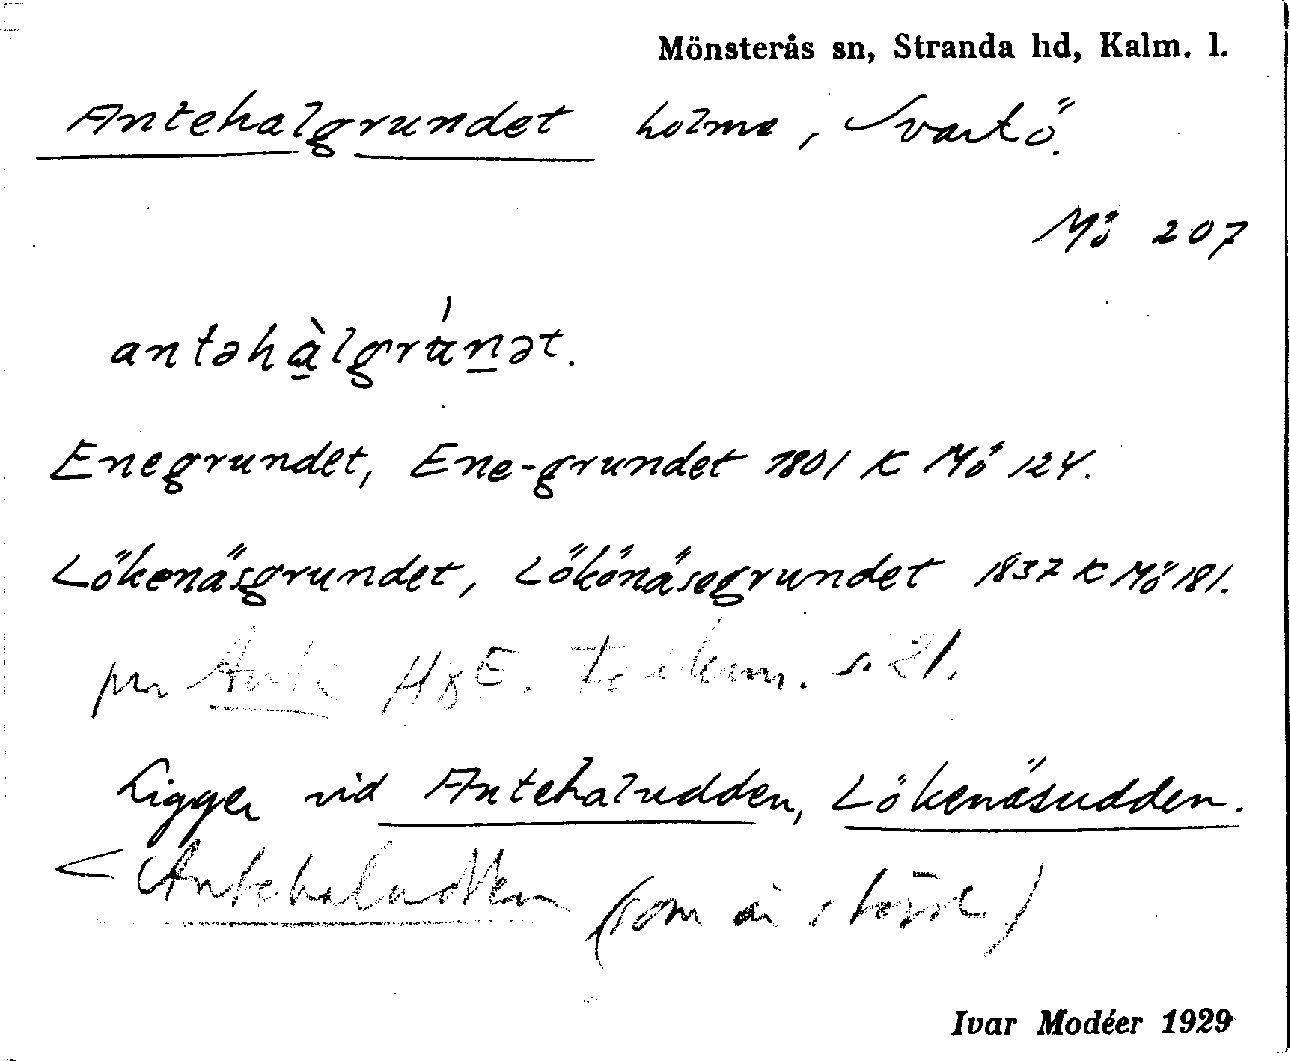 Mönsterås sn, Stranda hd, Kalm. l.
Antehalgrundet holme, Svartö.
Mö 207
antəhàlgrúnət.
Enegrundet, Ene-grundet 1801 K Mö 124.
Lökenäsgrundet, Lökönäsegrundet 1837 K Mö 181.
pn Ante s. 21.
Ligger vid Antehaludden, Lökenäsudden.
< Antehaludden (som är större)
Ivar Modéer 1929